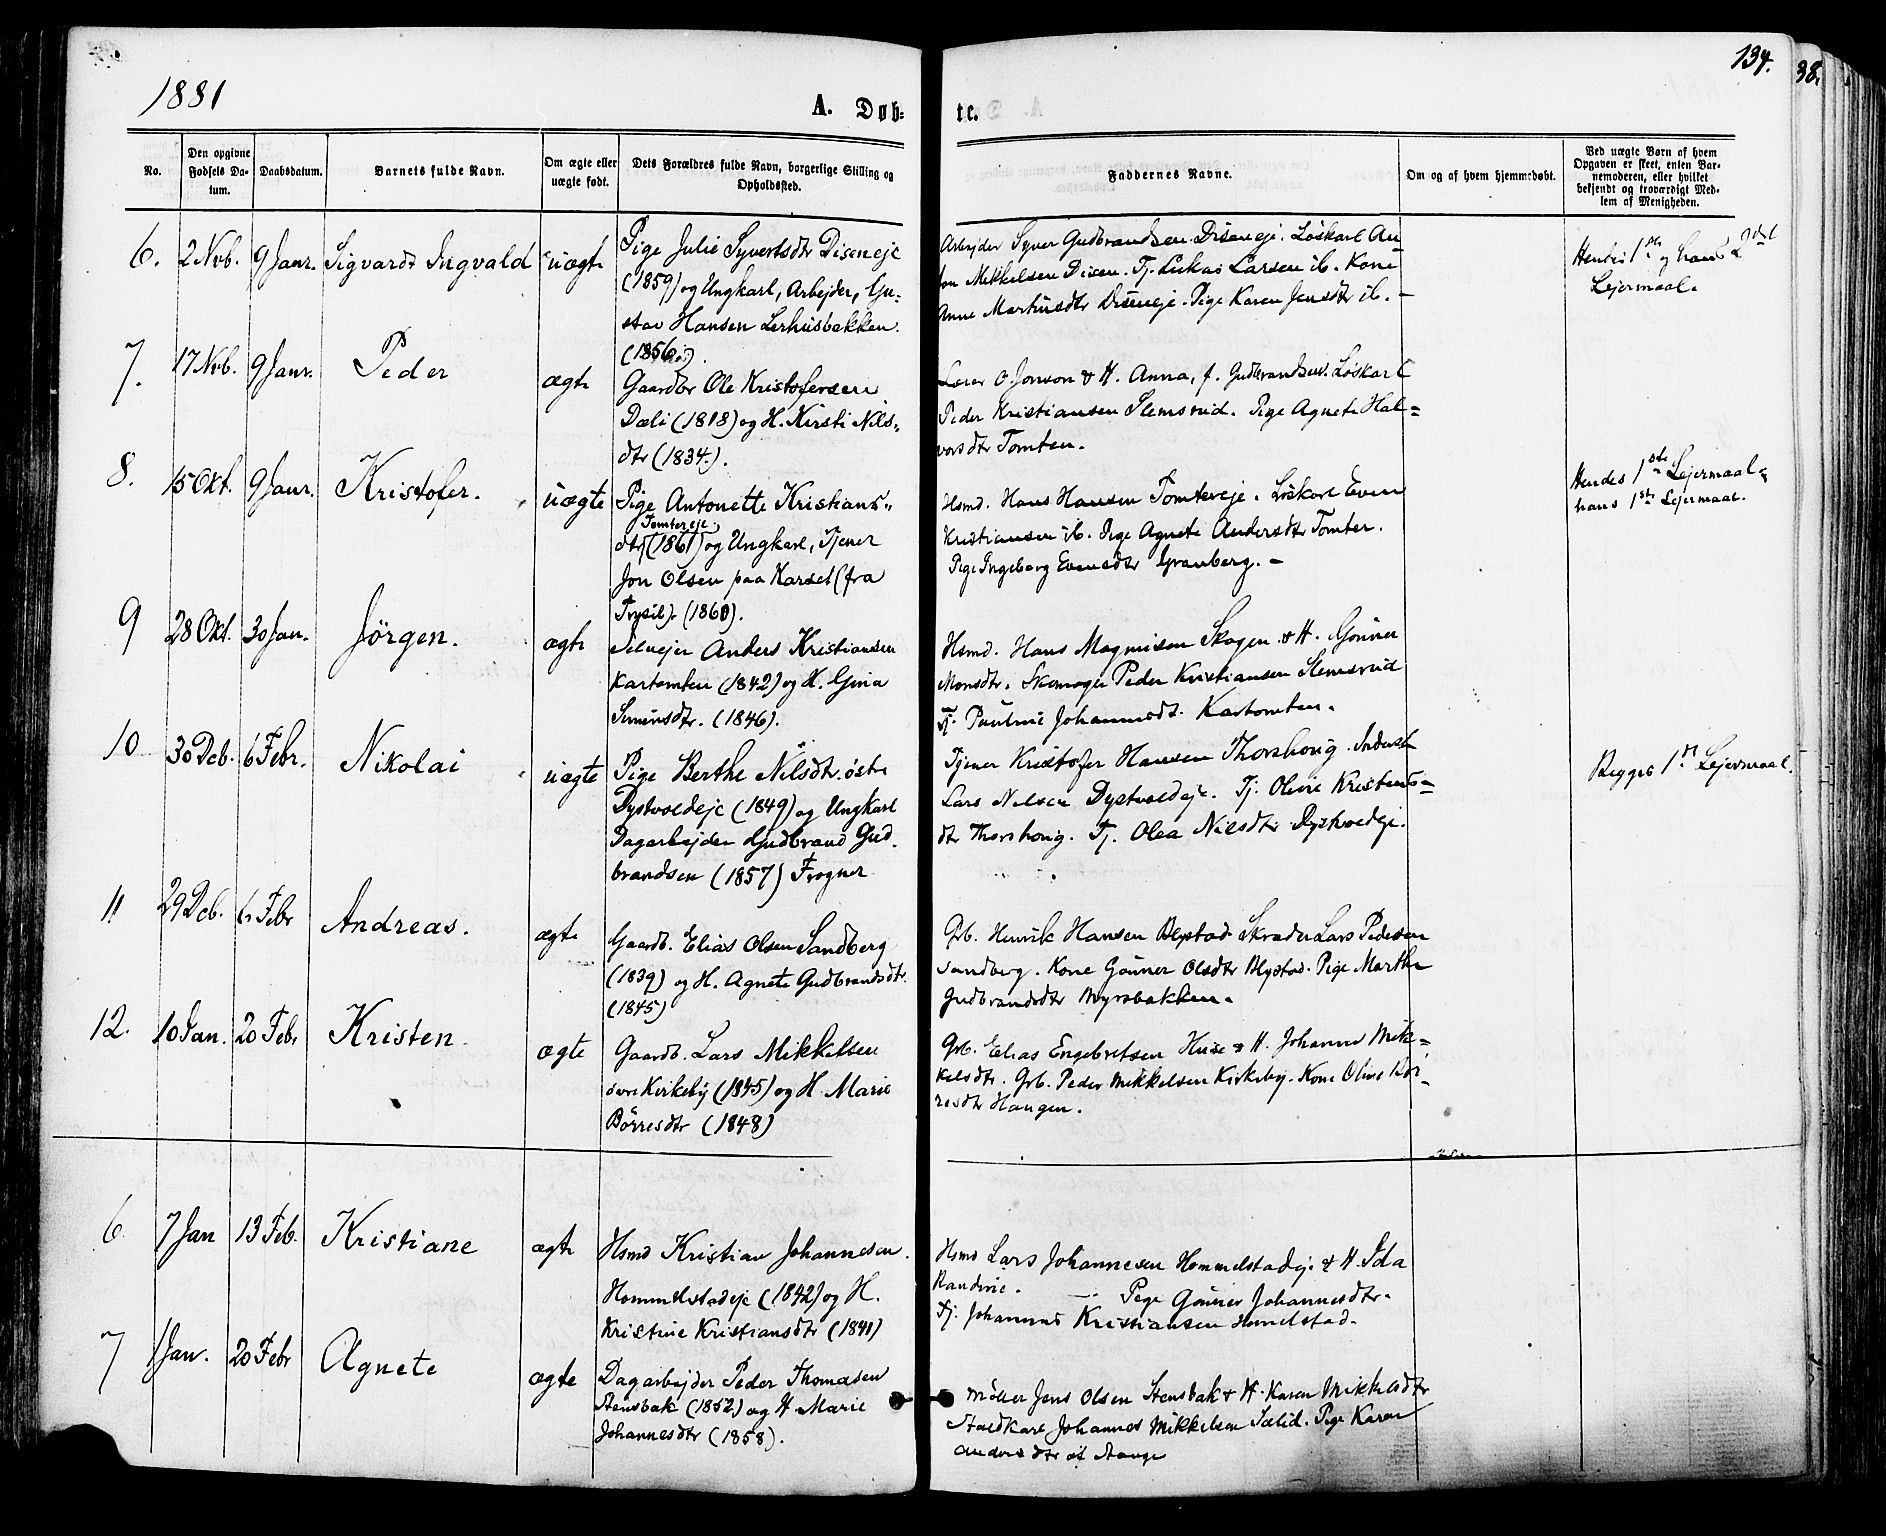 1881
A. Døb-
te.
134.
38.
No.
Den opgivne Fødsels Da-tum.
Daabsdatum.
Barnets fulde Navn.
Om ægte eller uægte født.
Dets Forældres fulde Navn, borgerlige Stilling og Opholdssted.
Faddernes Navne.
Om og af hvem hjemmedøbt.
Ved uægte Børn af hvem Opgaven er skeet, enten Bar-nemoderen, eller hvilket bekjendt og troværdigt Med-lem af Menigheden.
6. 2 Nvb. 9 Janr. Sigvardt Ingvald uægte
Pige Julie Syvertsdtr Diseneje
(1859) og Ungkarl, Arbejder, Gu-
stav Hansen Lerhusbakken
(1856).
Arbejder Syver Gudbrandsen Diseneje. Løskarl An-
ton Mikkelsen Disen. Tj. Lukas Larsen ib. Kone
Anne Martinsdtr Diseneje. Pige Karen Jensdtr ib. -
Hendes 1ste og hans 2det
Lejermaal.
7. 17 Nvb. 9 Janr. Peder ægte
Gaardbr Ole Kristofersen
Dæli (1818) og H. Kirsti Nils-
dtr (1834.).
Lærer O. Jonson & H. Anna, f. Gudbrandsen. Løskarl
Peder Kristiansen Slemsrud. Pige Agnete Hal-
vorsdtr Tomten.
8. 15 Okt. 9 Janr. Kristofer. uægte
Pige Antonette Kristians-
Tomtereje
dtr (1861) og Ungkarl, Tjener
Jon Olsen paa Karset (fra
Trysil). (1860).
Hsmd. Hans Hansen Tomtereje. Løskarl Even
Kristiansen ib. Pige Agnete Andersdtr Tomter.
Pige Ingeborg Evensdtr Granberg. -
Hendes 1ste Lejermaal
hans 1ste Lejermaal.
9 28 Okt. 30 Jan. Jörgen. ægte
Selvejer Anders Kristiansen
Kartomten (1842) og H. Gina
Simensdtr. (1846).
Hsmd. Hans Magnusen Skogen & H. Gunner
Monsdtr. Skomager Peder Kristiansen Slemsrud
Tj. Pauline Johannesdt. Kartomten.
10 30 Dcb. 6 Febr. Nikolai uægte
Pige Berthe Nilsdtr. östre
Dystvoldeje (1849) og Ungkarl
Dagarbejder Gudbrand Gud-
brandsen (1857) Frogner
Tjener Kristofer Hansen Thorshoug. Inderst
Lars Nilsen Dystvoldeje. Tj. Oline Kristens-
dtr Thorshoug. Tj. Olea Nilsdtr Dystvoldeje.
Begges 1ste Lejermaal.
11 29 Dcb. 6 Febr Andreas. ægte
Gaardb. Elias Olsen Sandberg
(1839) og H. Agnete Gudbrandsdtr.
(1845)
Grb. Henrik Hansen Blystad Skræder Lars Pedersen
Sandberg. Kone Gunner Olsdtr Blystad. Pige Marthe
Gudbrandsdtr Myrsbakken.
12. 10 Jan. 20 Febr Kristen ægte
Gaardb. Lars Mikkelsen
Kirkeby (1845) og H. Marie
Börresdtr (1848)
Grb. Elias Engebretsen Huse & H. Johanne Mik-
kelsdtr. Grb. Peder Mikkelsen Kirkeby. Kone Oline Bör-
resdtr Haugen.
6 7 Jan 13 Feb. Kristiane ægte
Hsmd Kristian Johannesen
Hommelstadeje (1842) og H.
Kristine Kristiansdtr (1841)
Hsmd Lars Johannesen Hommelstadeje & H. Ida
Randine. Pige Gunner Johannesdtr.
Tj. Johannes Kristiansen Hmelstad.
7 1 Jan. 20 Febr Agnete ægte
Dagarbejder Peder Thomasen
Stensbak (1852) og H Marie
Johannesdtr (1858).
Möller Jens Olsen Stensbak & H. Karen Mikkelsdtr
Staldkarl Johannes Mikkelsen Sælid. Pige Karen
Andersdtr af Stange